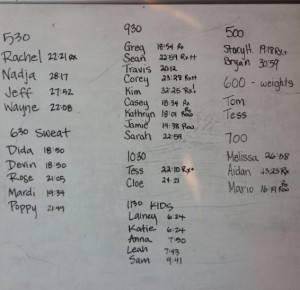 530
Rachel 22:21 RX
Nadja 28:17
Jeff 27:52
Wayne 22:08
630 Sweat
Dida 18:50
Devin 18:50
Rose 21:05
Mardi 19:34
Poppy 21:49
930
Greg 18:54 Rx
Sean 22:59 Rx+
Travis 20:12
Corey 23:28 Rx+
Kim 32:25 Rx
Casey 18:34 Rx
Kathryn 18:01 Row
Jamie 19:38 Row
Sarah 22:59
1030
Tess 22:10 Rx+
Cloe 24:21
1130 KIDS
Lainey 6:24
Katie 6:24
Anna 7:50
Leah 7:43
Sam 9:41
500
Story H. 19:18 Rx+
Bryan 30:59
600 - weights
Tom
Tess
700
Melissa 26:58
Aidan 23:23 Rx
Mario 16:19 Rx Row